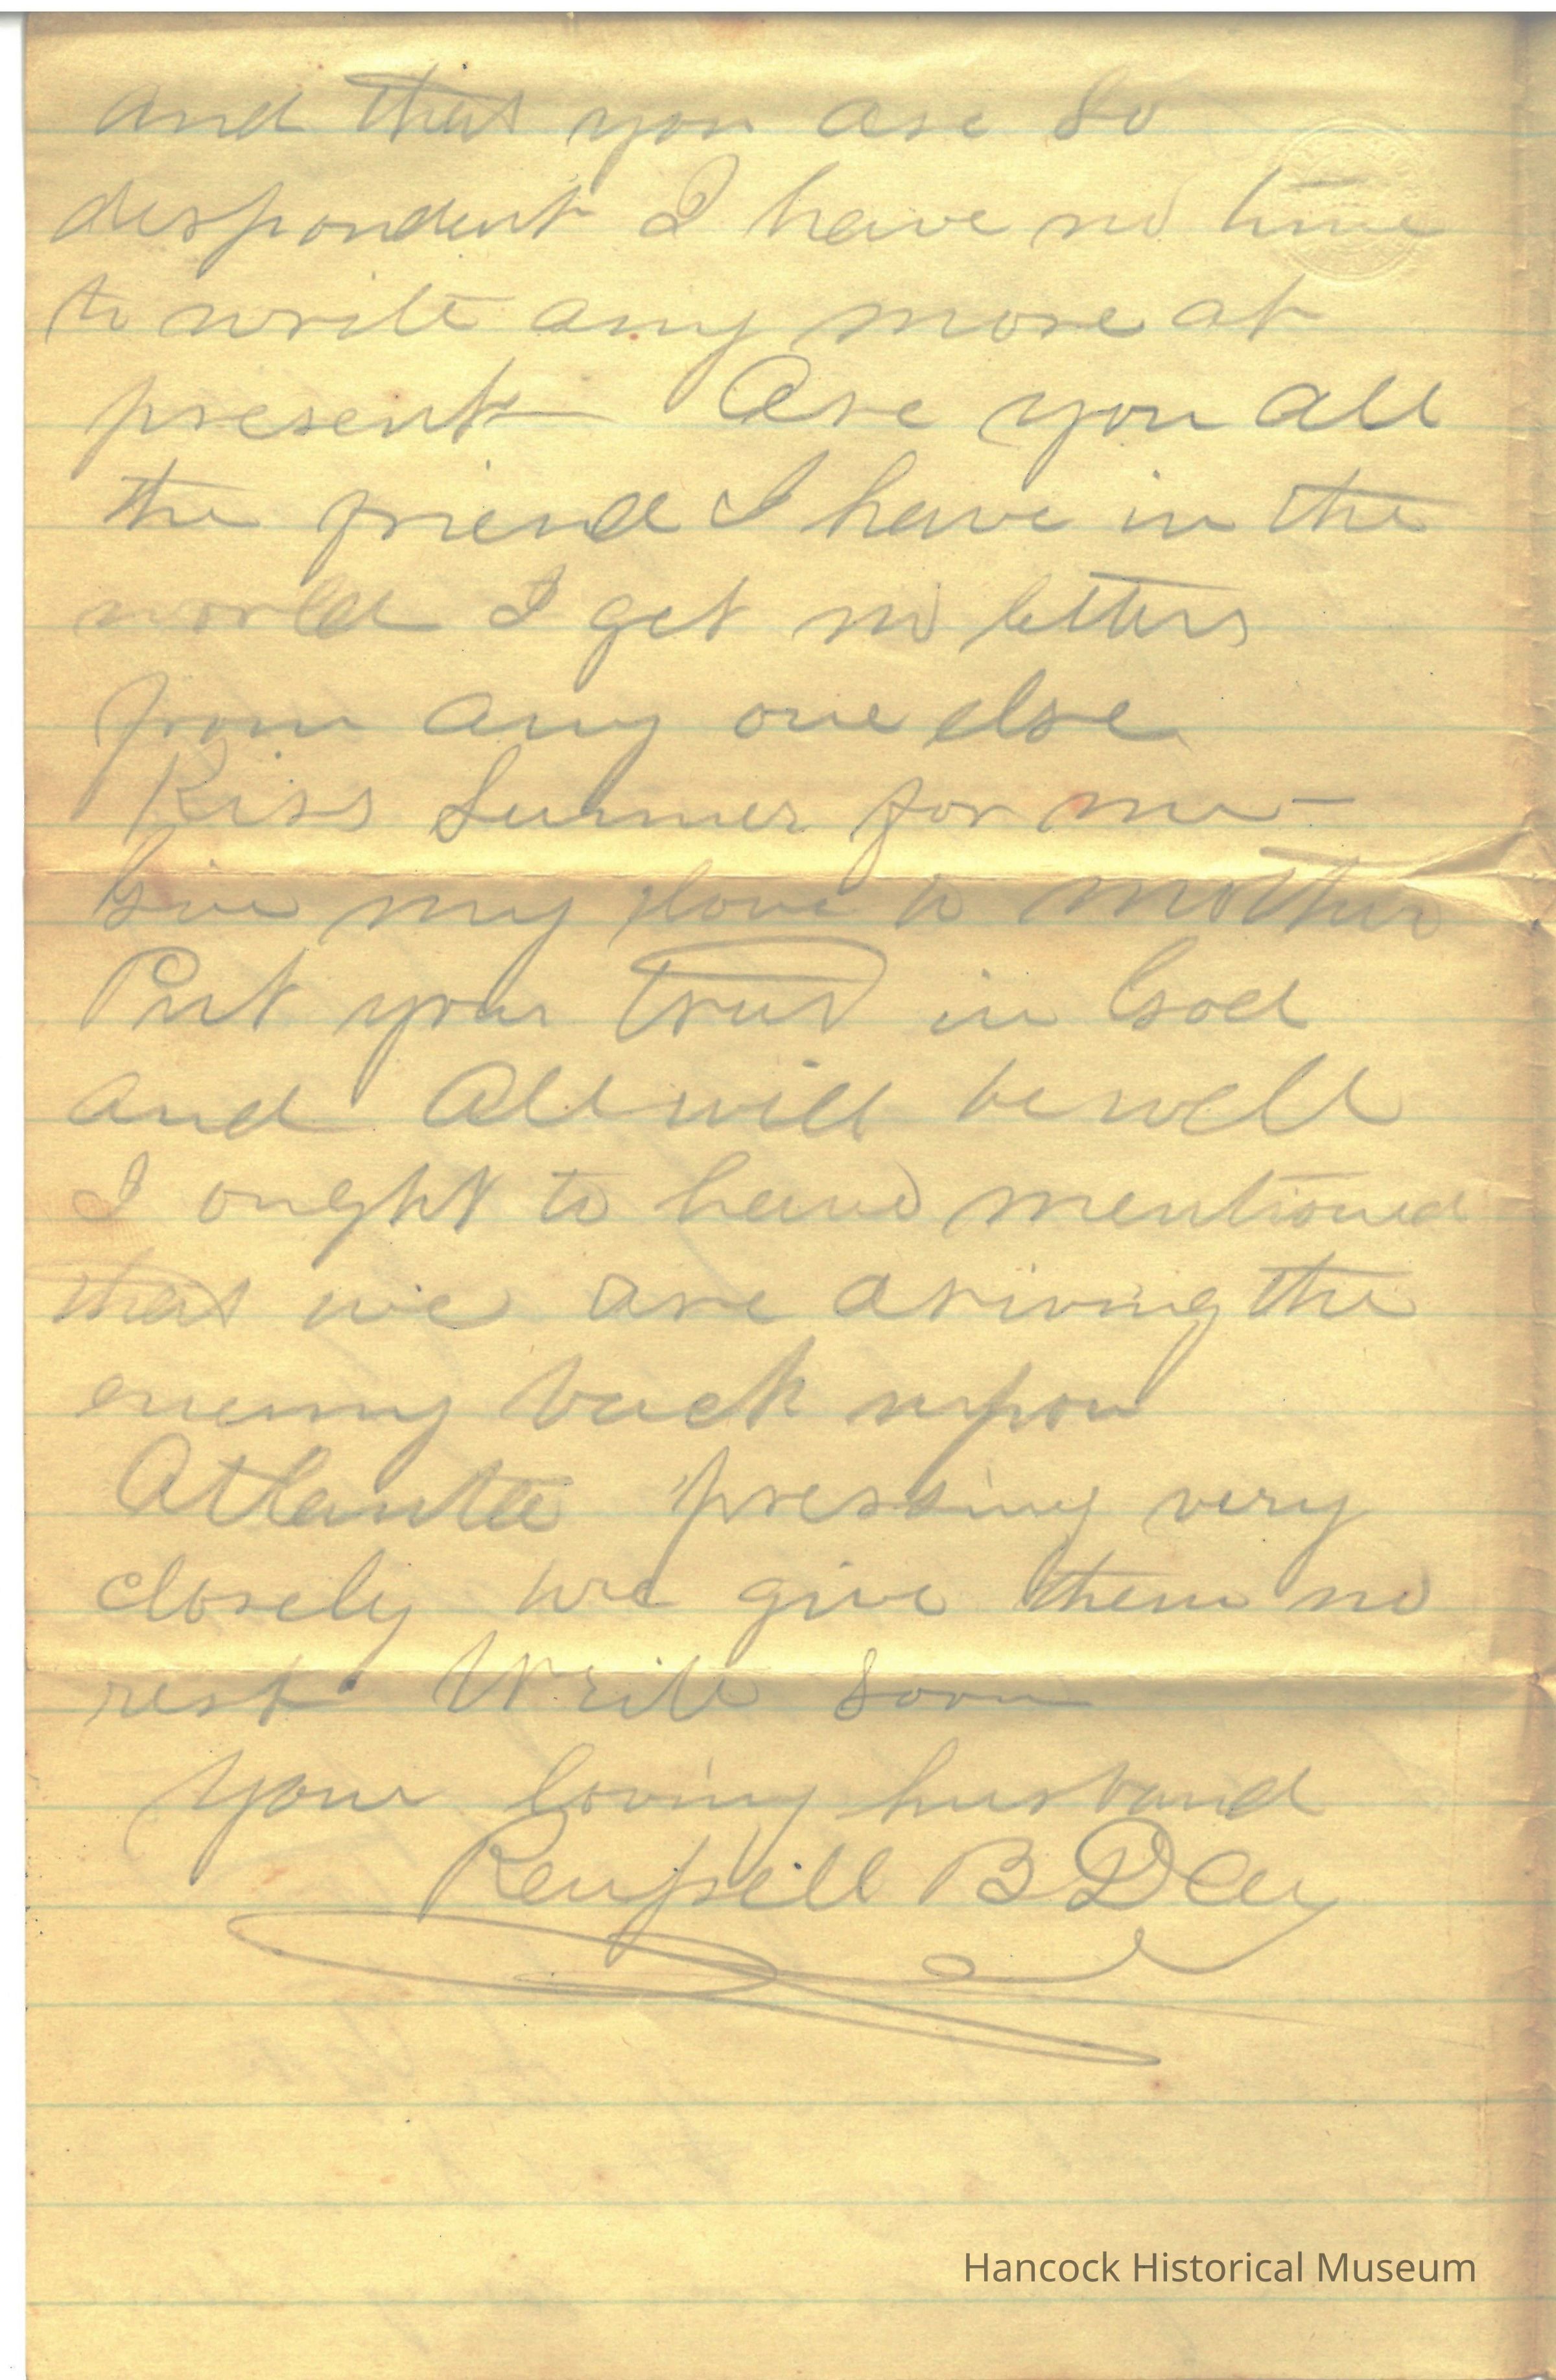 and that you are so
despondent I have no time
to write any more at
present Are you all
the friend I have in the
world I get no letters
from any one else
Kiss Sumner for me -
Give my love to mother
Put your trust in God
and All will be well
I ought to have mentioned
that we are driving the
enemy back upon
Atlanta pressing very
closely we give them no
rest. Write soon
Your loving husband
B Day
Hancock Historical Museum